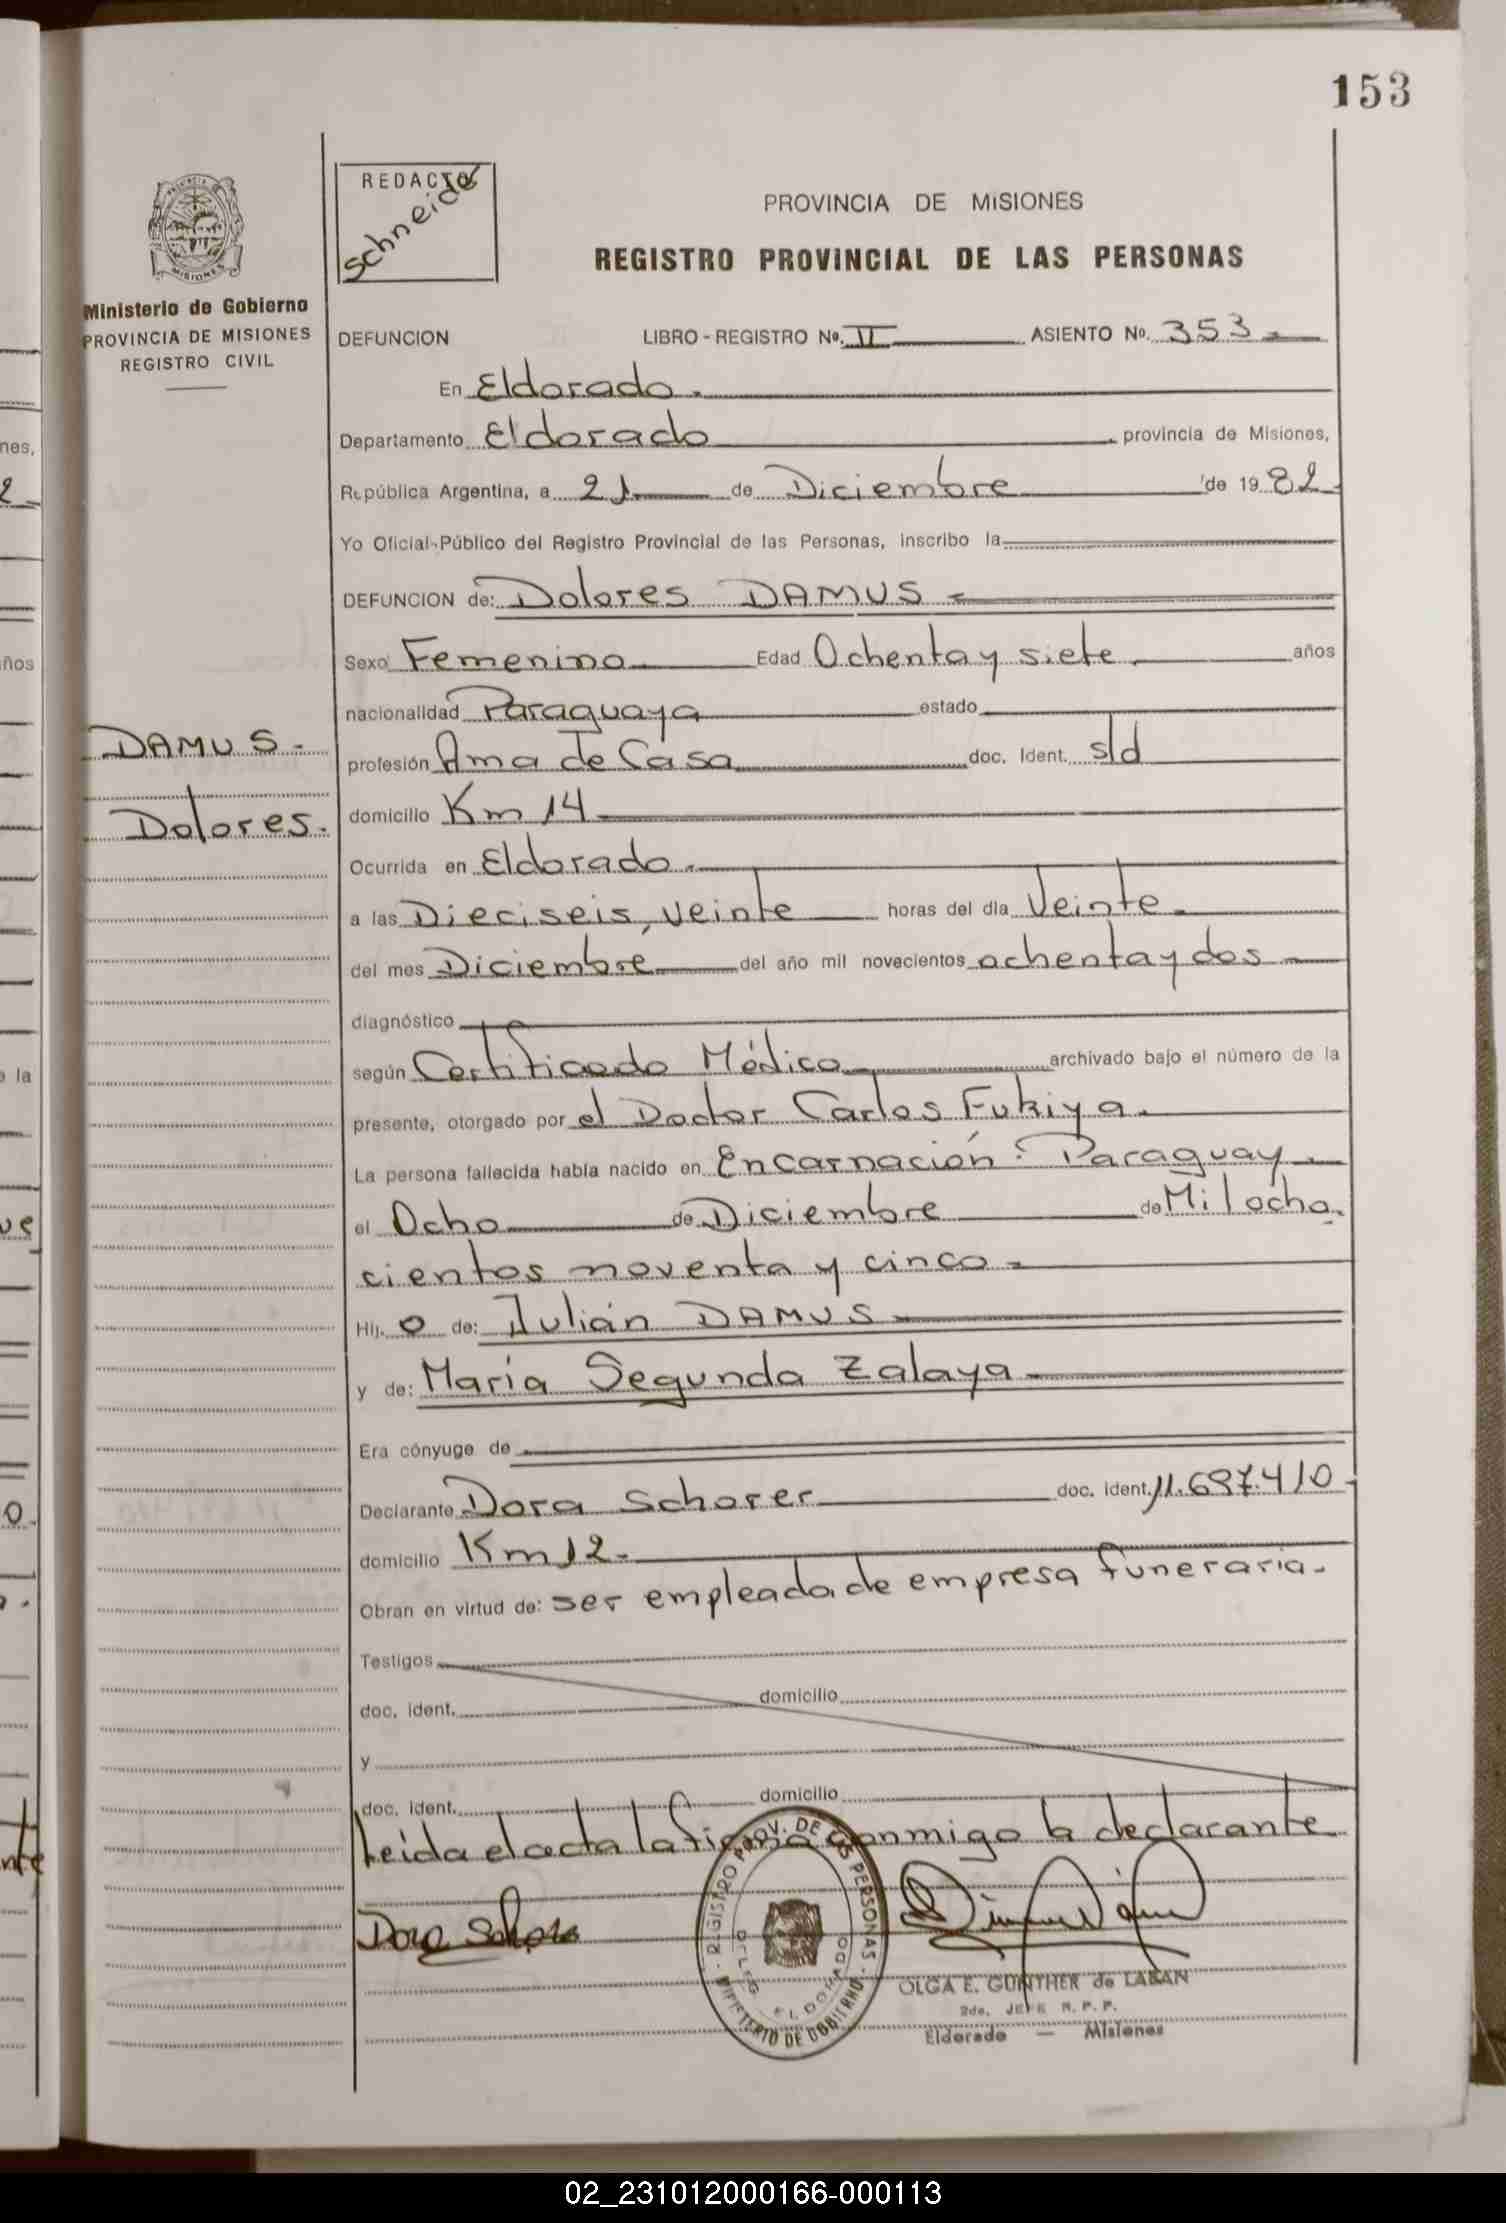 153
REDACTO
Schneider
PROVINCIA DE MISIONES
REGISTRO PROVINCIAL DE LAS PERSONAS
Ministerio de Gobierno
PROVINCIA DE MISIONES
REGISTRO CIVIL
DEFUNCION LIBRO - REGISTRO Nº. II ASIENTO Nº. 353
En Eldorado.
Departamento Eldorado provincia de Misiones,
República Argentina, a 21 de Diciembre de 1982
Yo Oficial Público del Registro Provincial de las Personas, inscribo la
DEFUNCION de: Dolores DAMUS
Sexo Femenino Edad Ochenta y siete años
nacionalidad Paraguaya estado
DAMUS.
Dolores.
profesión Ama de Casa doc. Ident. s/d
domicilio Km 14
Ocurrida en Eldorado.
a las Dieciseis, veinte horas del día Veinte
del mes Diciembre del año mil novecientos ochenta y dos
diagnóstico
según Certificado Médico archivado bajo el número de la
presente, otorgado por el Doctor Carlos Fukiya.
La persona fallecida había nacido en Encarnación - Paraguay
el Ocho de Diciembre de Mil ocho.
cientos noventa y cinco
Hij. o de: Julián DAMUS
y de: María Segunda Zalaya
Era cónyuge de
Declarante Dora Schorer doc. ident. 11.697.410
domicilio Km 12.
Obran en virtud de: ser empleada de empresa funeraria.
Testigos
doc. ident. domicilio
y
doc. ident. domicilio
Leída el acta la firma conmigo la declarante
Dora Schorer
REGISTRO PROV. DE LAS PERSONAS
DELEG. ELDORADO
MINISTERIO DE GOBIERNO
OLGA E. GUNTHER de LABAN
2do. JEFE R. P. P.
Eldorado — Misiones
02_231012000166-000113